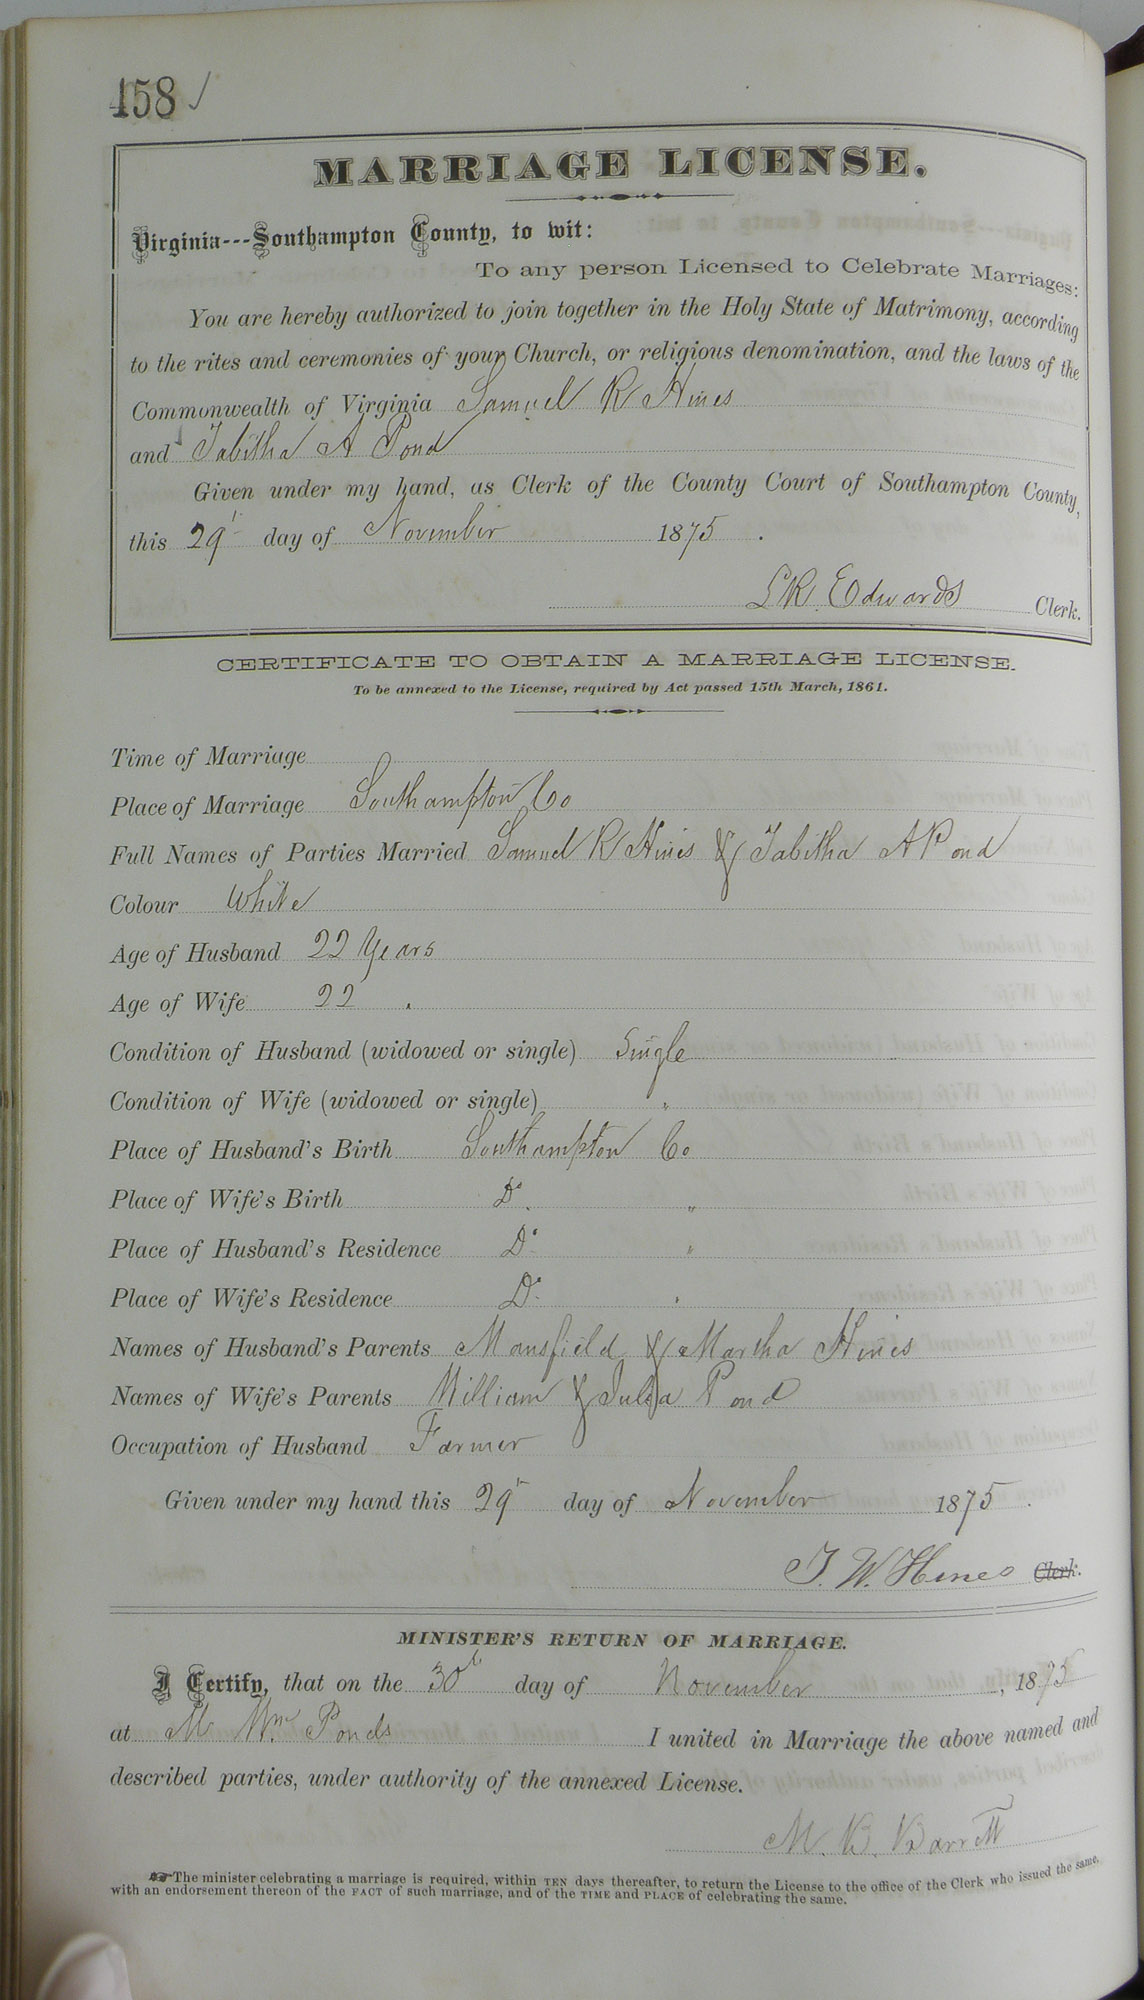 458 ✓
MARRIAGE LICENSE.
Virginia---Southampton County, to wit:
To any person Licensed to Celebrate Marriages:
You are hereby authorized to join together in the Holy State of Matrimony, according
to the rites and ceremonies of your Church, or religious denomination, and the laws of the
Commonwealth of Virginia Samuel R Hines
and Tabitha A Pond
Given under my hand, as Clerk of the County Court of Southampton County,
this 29' day of November 1875.
L R. Edwards Clerk.
CERTIFICATE TO OBTAIN A MARRIAGE LICENSE.
To be annexed to the License, required by Act passed 15th March, 1861.
Time of Marriage
Place of Marriage Southampton Co
Full Names of Parties Married Samuel R Hines & Tabitha A Pond
Colour White
Age of Husband 22 Years
Age of Wife 22 .
Condition of Husband (widowed or single) Single
Condition of Wife (widowed or single) "
Place of Husband's Birth Southampton Co
Place of Wife's Birth Do. "
Place of Husband's Residence Do "
Place of Wife's Residence Do "
Names of Husband's Parents Mansfield & Martha Hines
Names of Wife's Parents William & Julia Pond
Occupation of Husband Farmer
Given under my hand this 29 day of November 1875.
J. W. Hines Clerk.
MINISTER'S RETURN OF MARRIAGE.
I Certify, that on the 30th day of November, 1875
at Mr Wm Ponds I united in Marriage the above named and
described parties, under authority of the annexed License.
M. B. Barrett
☛The minister celebrating a marriage is required, within TEN days thereafter, to return the License to the office of the Clerk who issued the same,
with an endorsement thereon of the FACT of such marriage, and of the TIME and PLACE of celebrating the same.